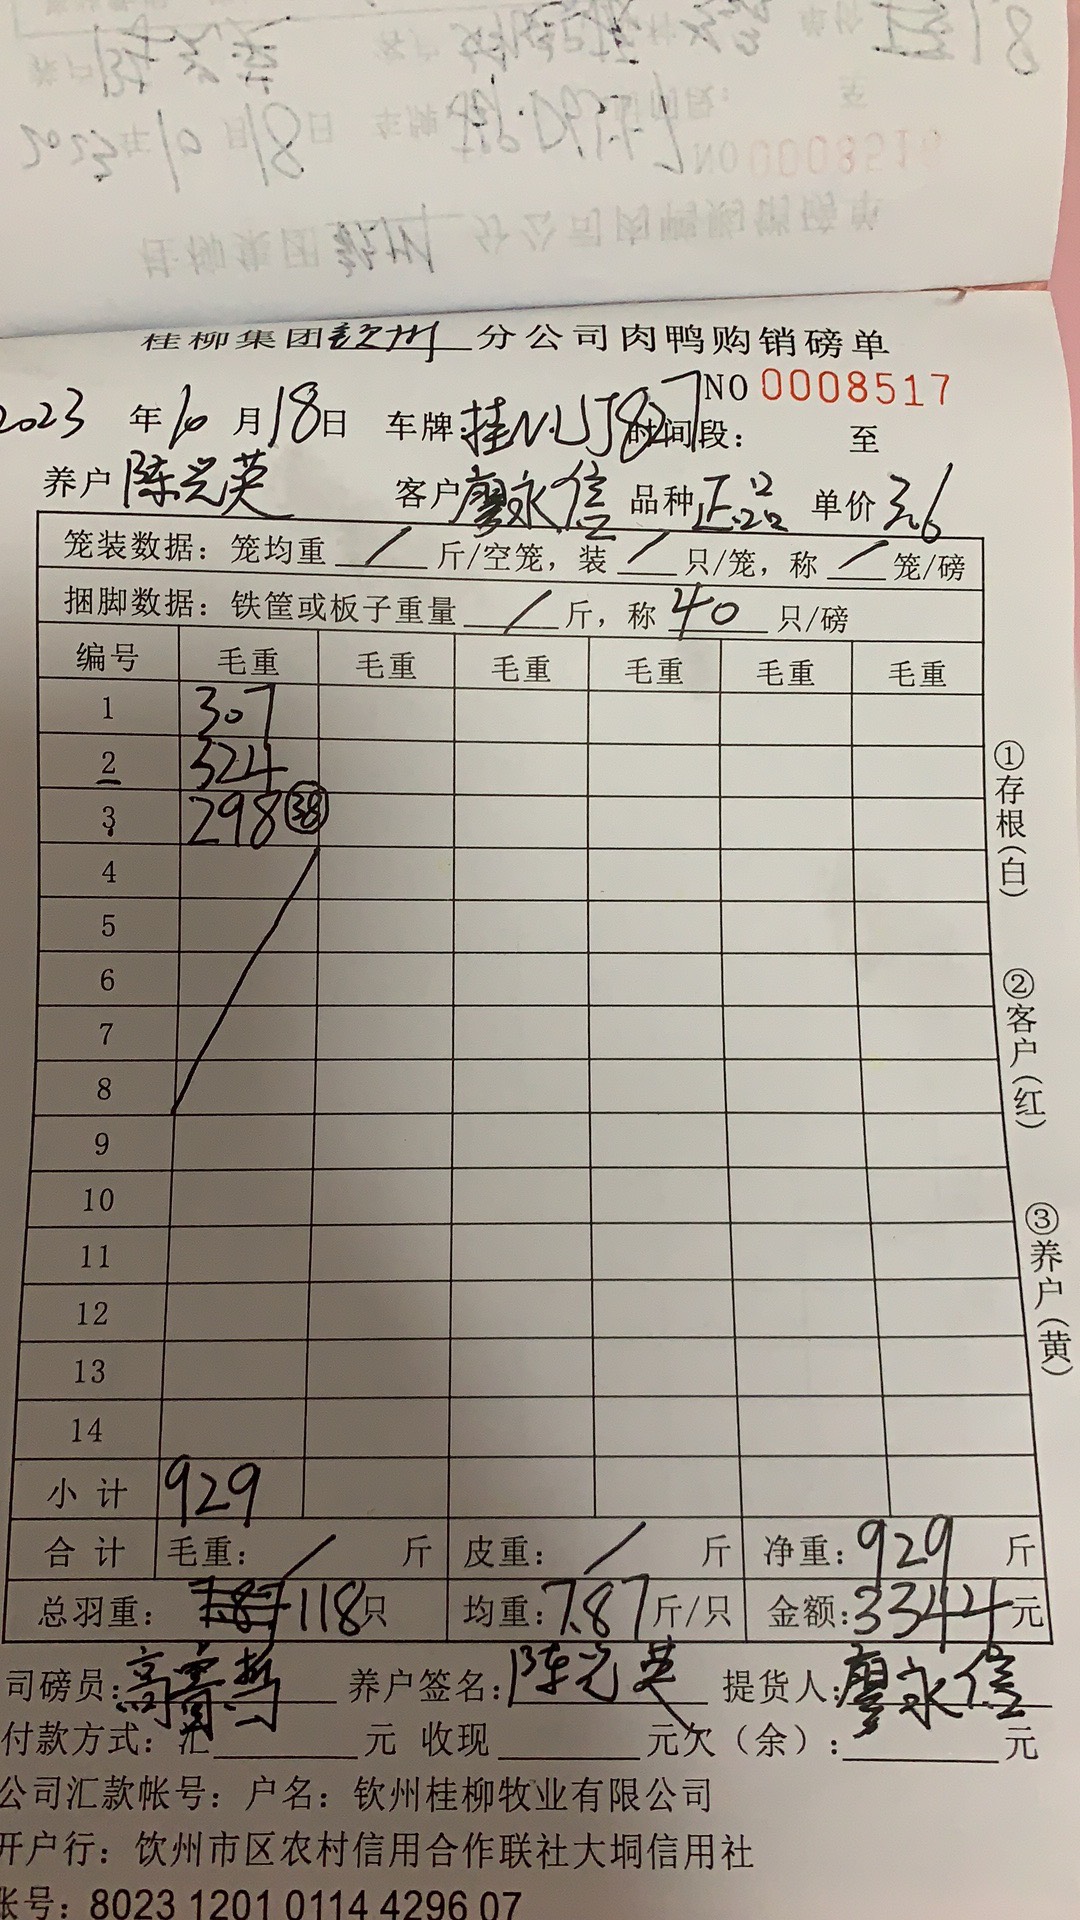 2023年10月18日 车牌
NO0008516
桂柳集团钦州分公司肉鸭购销磅单
桂柳集团钦州分公司肉鸭购销磅单
NO 0008517
2023年10月18日 车牌:桂N·UJ827 时间段: 至
养户陈光英 客户廖永信 品种正品 单价3.6
笼装数据:笼均重 / 斤/空笼,装 / 只/笼,称 / 笼/磅
捆脚数据:铁筐或板子重量 / 斤,称 40 只/磅
编号 毛重 毛重 毛重 毛重 毛重 毛重
1 307
2 324
3 298 38
4
5
6
7
8
9
10
11
12
13
14
小计 929
合计 毛重: / 斤 皮重: / 斤 净重:929 斤
总羽重: 118只 均重:7.87斤/只 金额:3344元
司磅员: 养户签名:陈光英 提货人:廖永信
付款方式:汇 元 收现 元欠(余): 元
公司汇款帐号:户名:钦州桂柳牧业有限公司
开户行:饮州市区农村信用合作联社大垌信用社
账号:8023 1201 0114 4296 07
①存根(白)
②客户(红)
③养户(黄)